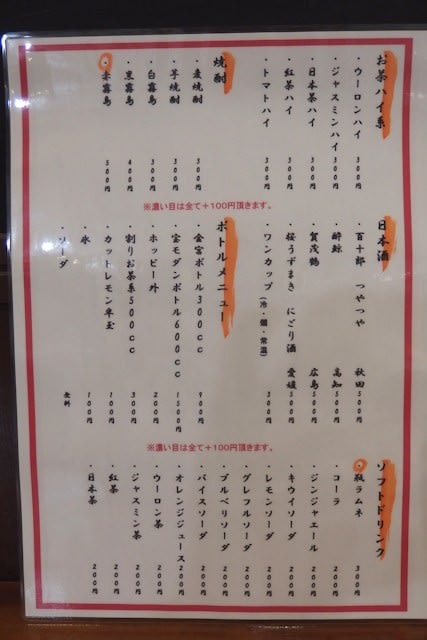 お茶ハイ系
・ウーロンハイ 300円
・ジャスミンハイ 300円
・日本茶ハイ 300円
・紅茶ハイ 300円
・トマトハイ 300円
焼酎
・麦焼酎 300円
・芋焼酎 300円
・白霧島 300円
・黒霧島 400円
・赤霧島 500円
※濃い目は全て+100円頂きます。
日本酒
・百十郎 つやつや 秋田 500円
・酔鯨 高知 500円
・賀茂鶴 広島 500円
・桜うずまき にごり酒 愛媛 500円
・ワンカップ(冷・燗・常温) 300円
ボトルメニュー
・金宮ボトル300cc 900円
・宝モダンボトル600cc 1500円
・ホッピー外 200円
・割りお茶系500cc 300円
・カットレモン半玉 100円
・氷 100円
・ソーダ 無料
※濃い目は全て+100円頂きます。
ソフトドリンク
・瓶ラムネ 300円
・コーラ 200円
・ジンジャエール 200円
・キウイソーダ 200円
・レモンソーダ 200円
・グレフルソーダ 200円
・ブルベリソーダ 200円
・バイスソーダ 200円
・オレンジジュース 200円
・ウーロン茶 200円
・ジャスミン茶 200円
・紅茶 200円
・日本茶 200円